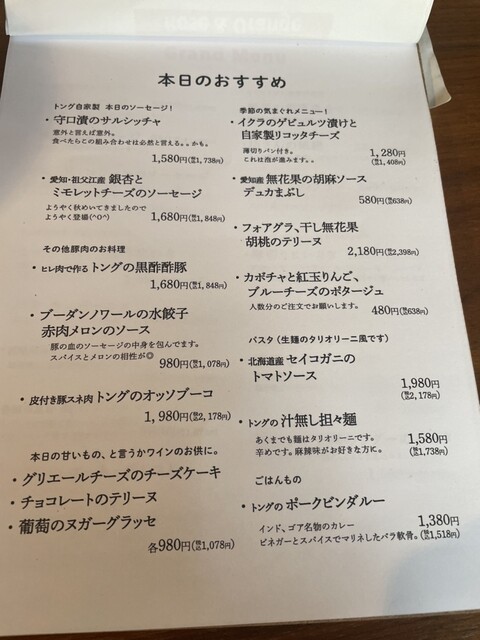 本日のおすすめ
トング自家製 本日のソーセージ!
・守口漬のサルシッチャ
意外と言えば意外。
食べたらこの組み合わせは必然と言える。。かも。
1,580円(税込1,738円)
・愛知・祖父江産 銀杏と
ミモレットチーズのソーセージ
ようやく秋めいてきましたので
ようやく登場(^O^)
1,680円(税込1,848円)
その他豚肉のお料理
・ヒレ肉で作る トングの黒酢酢豚
1,680円(税込1,848円)
・ブーダンノワールの水餃子
赤肉メロンのソース
豚の血のソーセージの中身を包んでます。
スパイスとメロンの相性が◎
980円(税込1,078円)
・皮付き豚スネ肉 トングのオッソブーコ
1,980円(税込2,178円)
本日の甘いもの、と言うかワインのお供に。
・グリエールチーズのチーズケーキ
・チョコレートのテリーヌ
・葡萄のヌガーグラッセ
各980円(税込1,078円)
季節の気まぐれメニュー!
・イクラのゲビュルツ漬けと
自家製リコッタチーズ
薄切りパン付き。
これは泡が進みます。。
1,280円
(税込1,408円)
・愛知産 無花果の胡麻ソース
デュカまぶし
580円(税込638円)
・フォアグラ、干し無花果
胡桃のテリーヌ
2,180円(税込2,398円)
・カボチャと紅玉りんご、
ブルーチーズのポタージュ
人数分のご注文でお願いします。
480円(税込638円)
パスタ(生麺のタリオリーニ風です)
・北海道産 セイコガニの
トマトソース
1,980円
(税込2,178円)
・トングの 汁無し担々麺
あくまでも麺はタリオリーニです。
辛めです。麻辣味がお好きな方に。
1,580円
(税込1,738円)
ごはんもの
・トングの ポークビンダルー
1,380円
インド、ゴア名物のカレー
ビネガーとスパイスでマリネしたバラ軟骨。(税込1,518円)